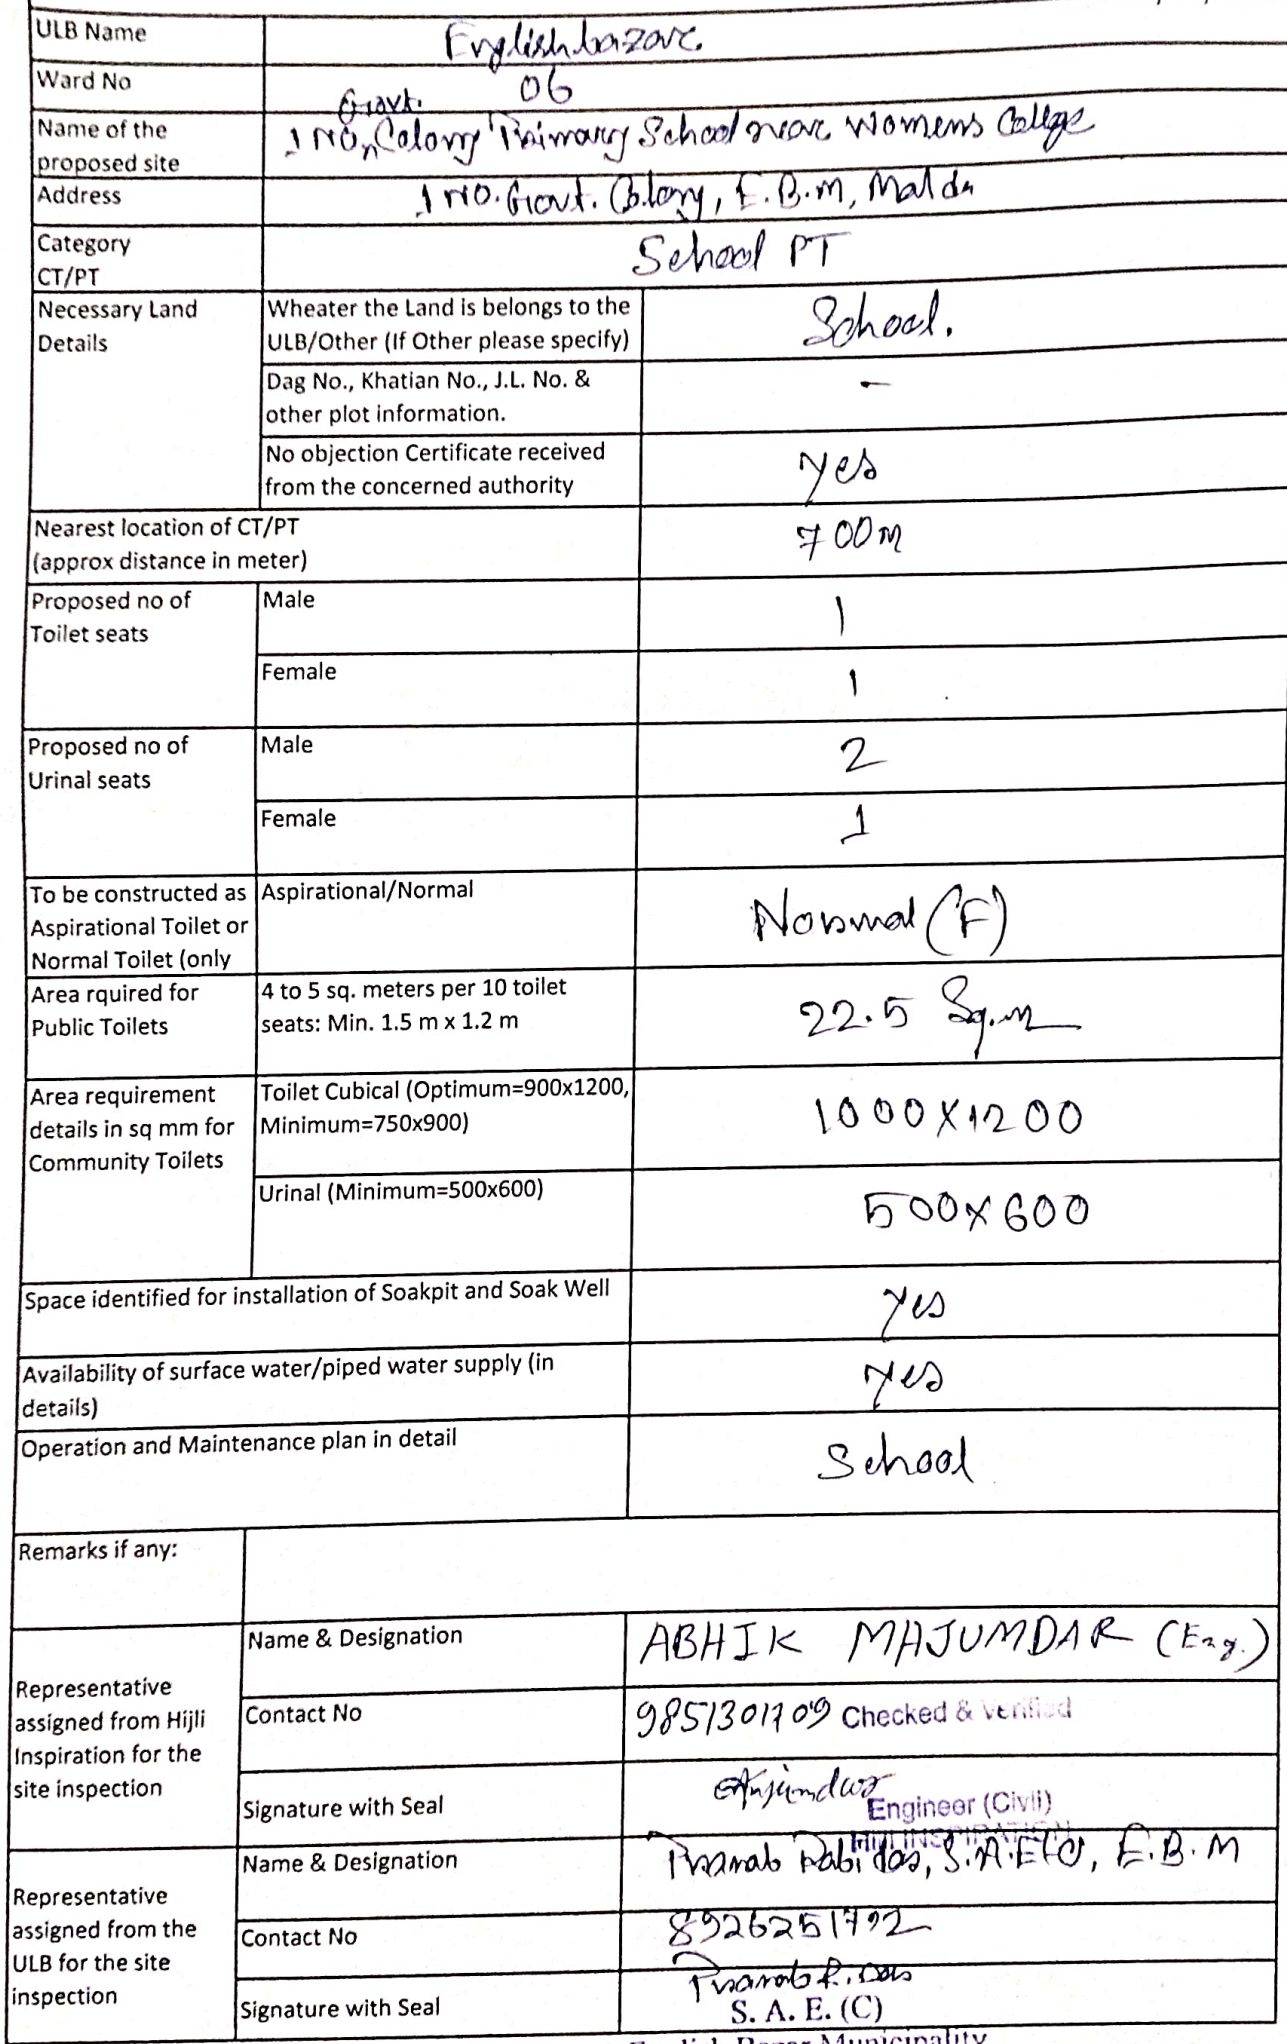 ULB Name Englishbazar
Ward No 06
Govt.
Name of the proposed site 1 No. Colony Primary School near Womens College
Address 1 No. Govt. Colony, E.B.M, Malda
Category
CT/PT School PT
Necessary Land Details
Wheater the Land is belongs to the
ULB/Other (If Other please specify) School.
Dag No., Khatian No., J.L. No. &
other plot information. -
No objection Certificate received
from the concerned authority yes
Nearest location of CT/PT
(approx distance in meter) 700m
Proposed no of
Toilet seats
Male 1
Female 1
Proposed no of
Urinal seats
Male 2
Female 1
To be constructed as
Aspirational Toilet or
Normal Toilet (only
Aspirational/Normal Normal (F)
Area rquired for
Public Toilets
4 to 5 sq. meters per 10 toilet
seats: Min. 1.5 m x 1.2 m 22.5 Sq.m
Area requirement
details in sq mm for
Community Toilets
Toilet Cubical (Optimum=900x1200,
Minimum=750x900) 1000X1200
Urinal (Minimum=500x600) 500x600
Space identified for installation of Soakpit and Soak Well yes
Availability of surface water/piped water supply (in
details) yes
Operation and Maintenance plan in detail School
Remarks if any:
Representative
assigned from Hijli
Inspiration for the
site inspection
Name & Designation ABHIK MAJUMDAR (Eng.)
Contact No 9851301709 Checked & Verified
Signature with Seal
Engineer (Civil)
HIJLI INSPIRATION
Representative
assigned from the
ULB for the site
inspection
Name & Designation Pranab Rabidas, S.A.E, E.B.M
Contact No 8926251792
Signature with Seal Pranab R. Das
S. A. E. (C)
English Bazar Municipality